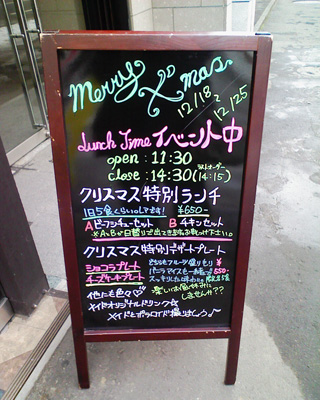 Merry X'mas
12/18 〜 12/25
Lunch Time イベント中
open : 11:30
close : 14:30 (ラストオーダー 14:15)
クリスマス特別ランチ
1日5食くらいのレアです! ¥650-
A ビーフシチューセット B チキンセット
※AかBが日替りで出てきますお気をつけ下さい。
クリスマス特別デザートプレート
ショコラプレート
チーズケーキプレート
どちらもフルーツ盛りもり
バニラアイスも一緒で ¥650-
他にも色々♡
メイドオリジナルドリンク☆
メイドとポラロイド撮りましょう♪